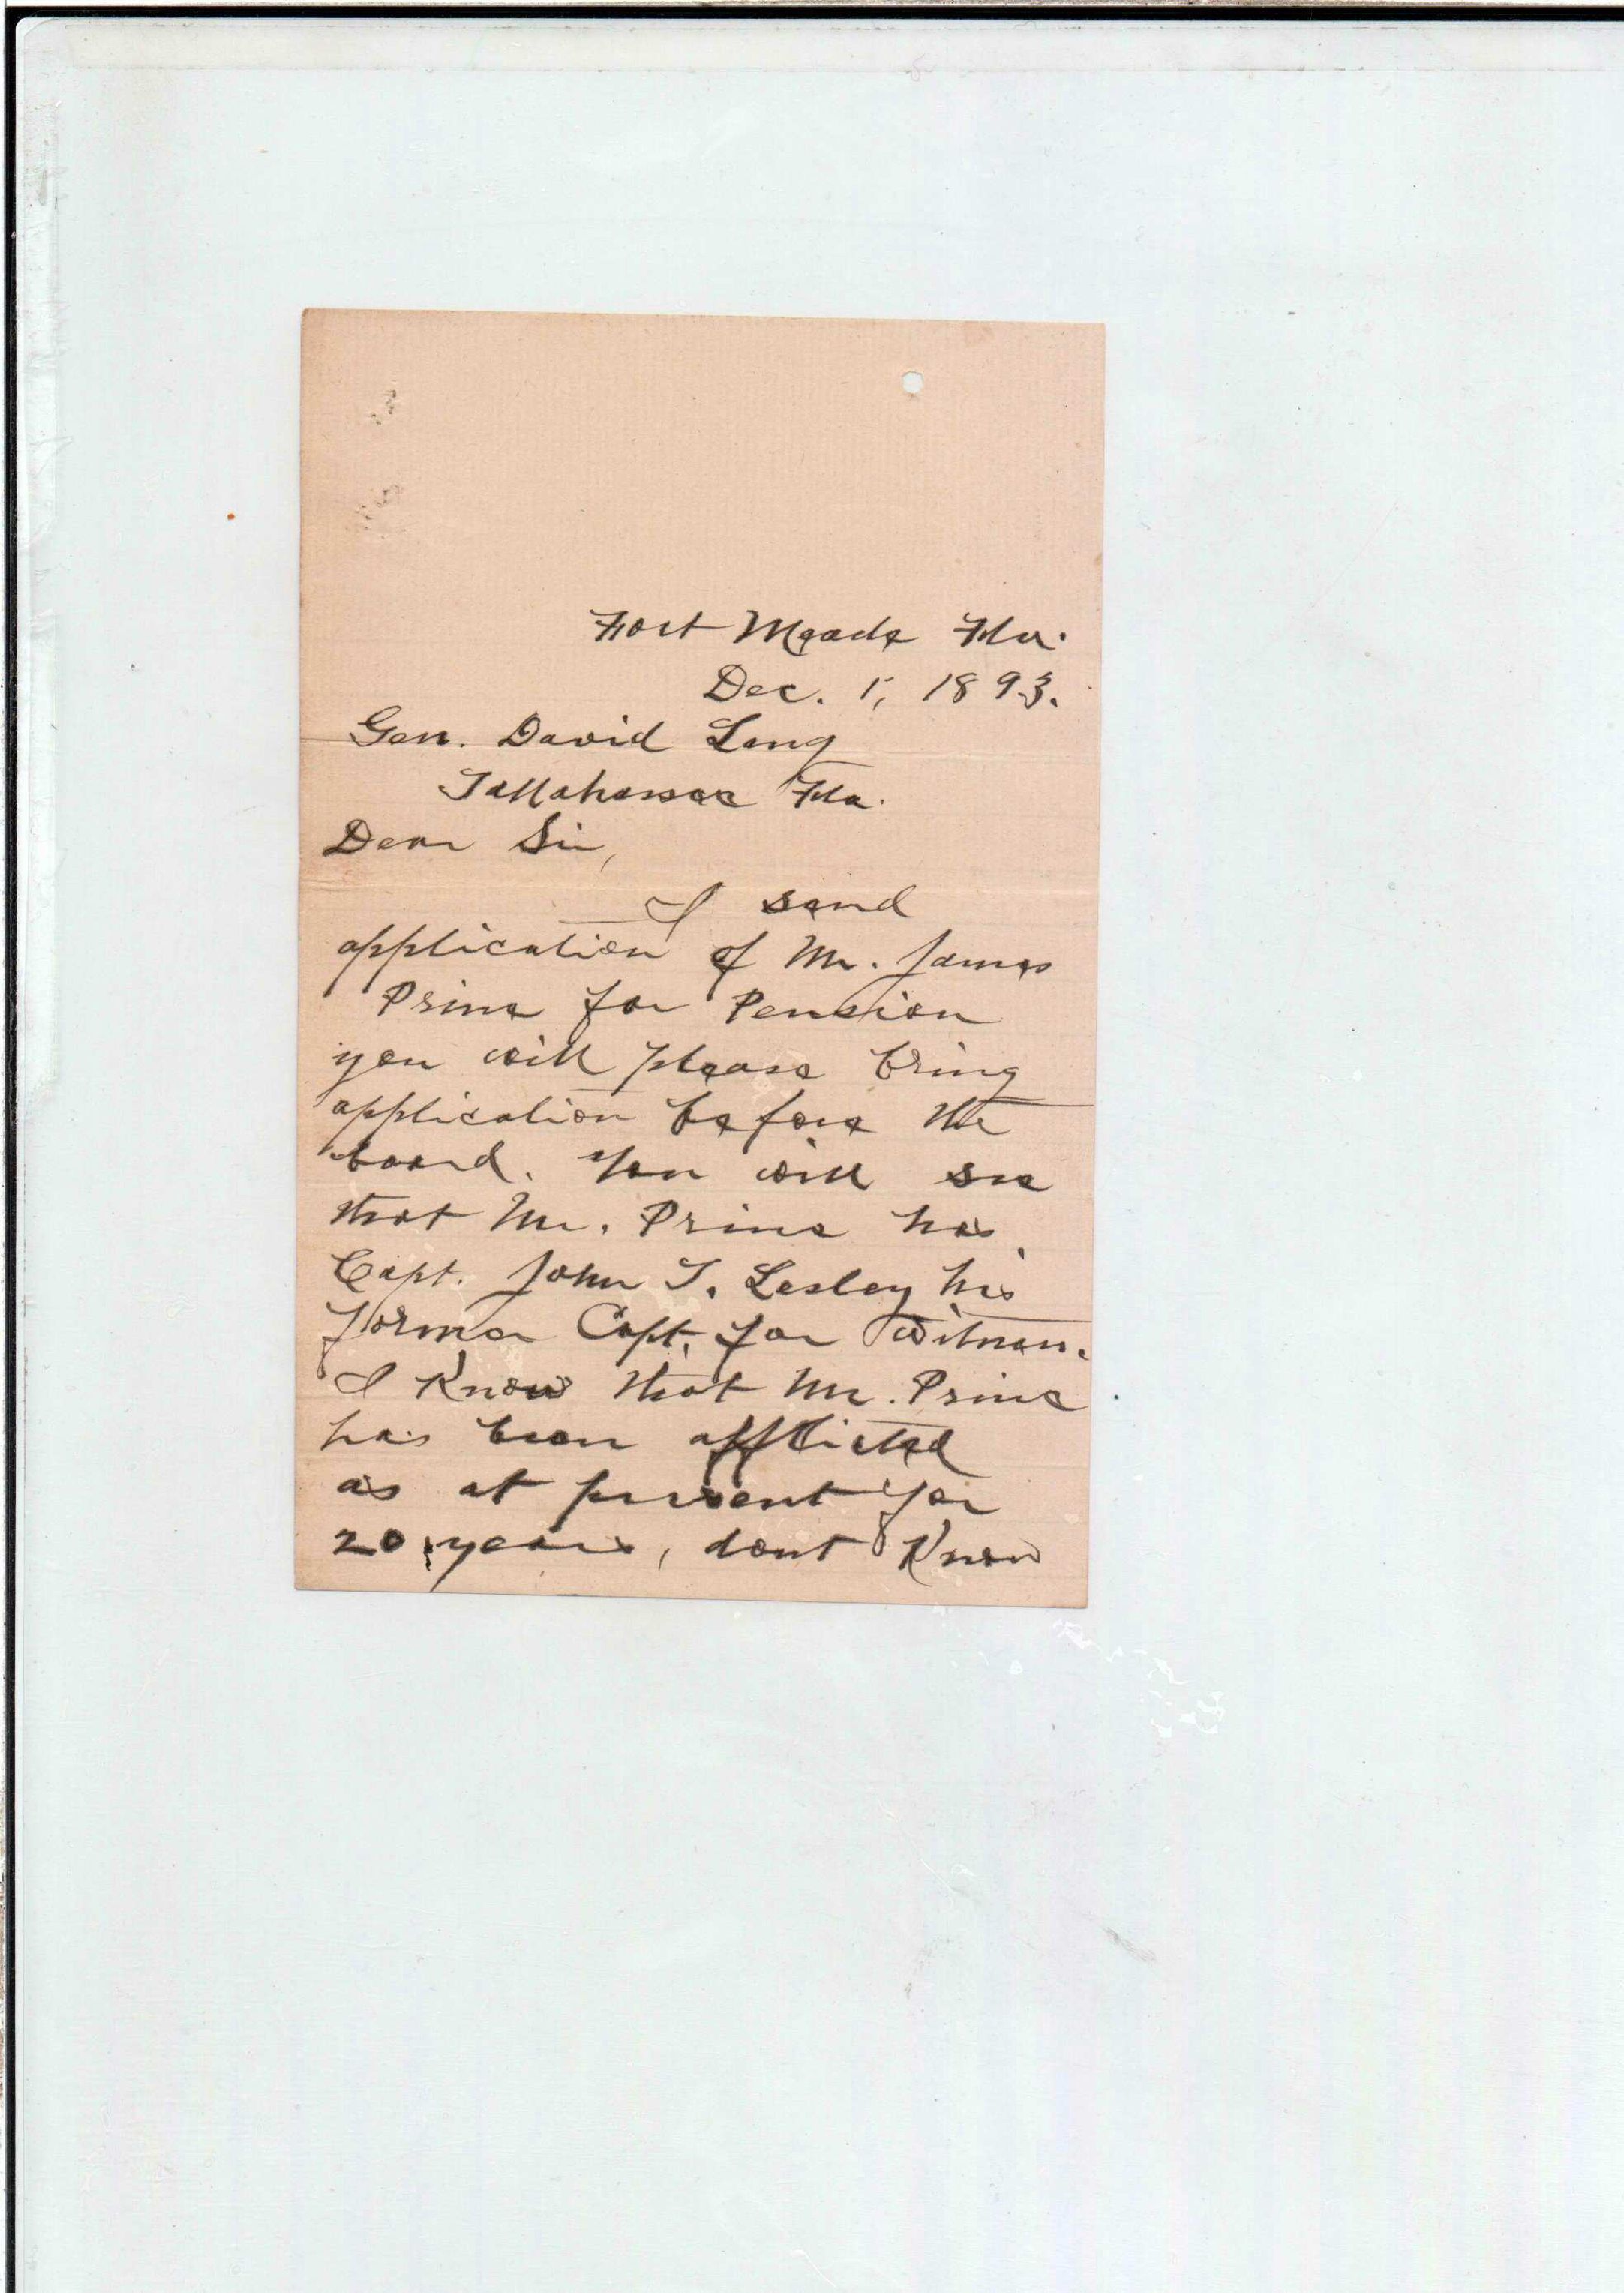 Fort Meade Fla.
Dec. 1, 1893.
Gen. David Lang
Tallahassee Fla.
Dear Sir,
I send
application of Mr. James
Prine for Pension
you will please bring
application before the
board. You will see
that Mr. Prine has
Capt. John T. Lesley his
former Capt. for witness.
I Know that Mr. Prine
has been afflicted
as at present for
20 years, dont Know